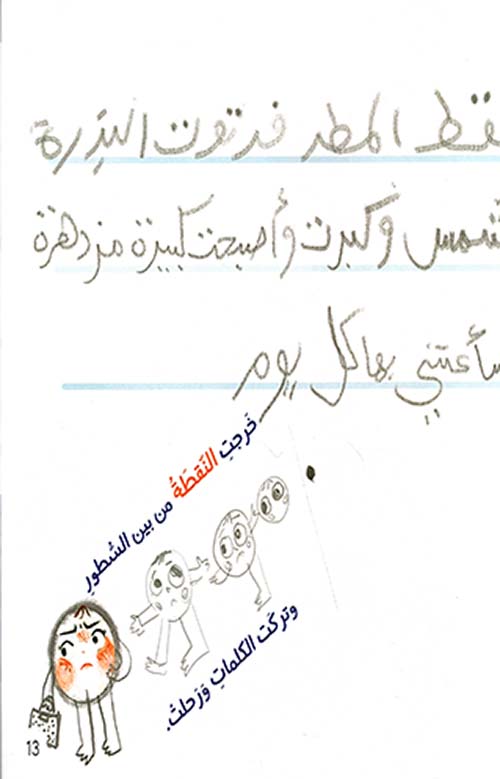 المطر فرتوت البذرة
وكبرت وأصبحت كبيرة مزدهرة
بها كل يوم
خَرجتِ النّقطَةُ من بين السُّطورِ
وتركت الكلماتِ وَرَحلتْ.
13